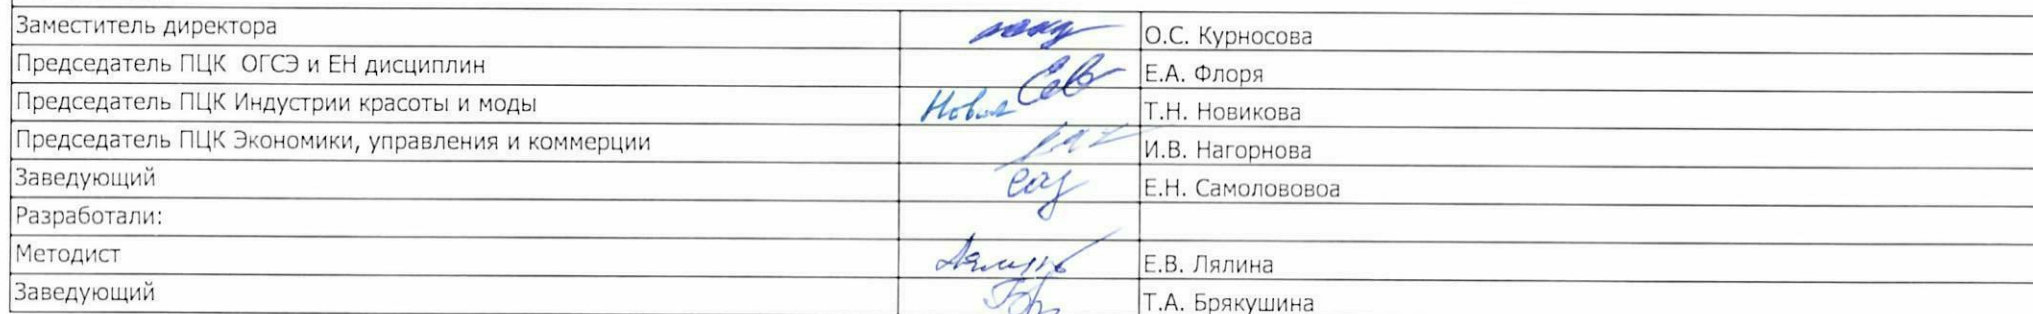 Заместитель директора О.С. Курносова
Председатель ПЦК ОГСЭ и ЕН дисциплин Е.А. Флоря
Председатель ПЦК Индустрии красоты и моды Т.Н. Новикова
Председатель ПЦК Экономики, управления и коммерции И.В. Нагорнова
Заведующий Е.Н. Самолововоа
Разработали:
Методист Е.В. Лялина
Заведующий Т.А. Брякушина